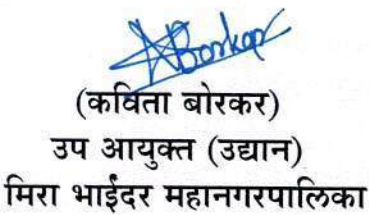 (कविता बोरकर)
उप आयुक्त (उद्यान)
मिरा भाईंदर महानगरपालिका